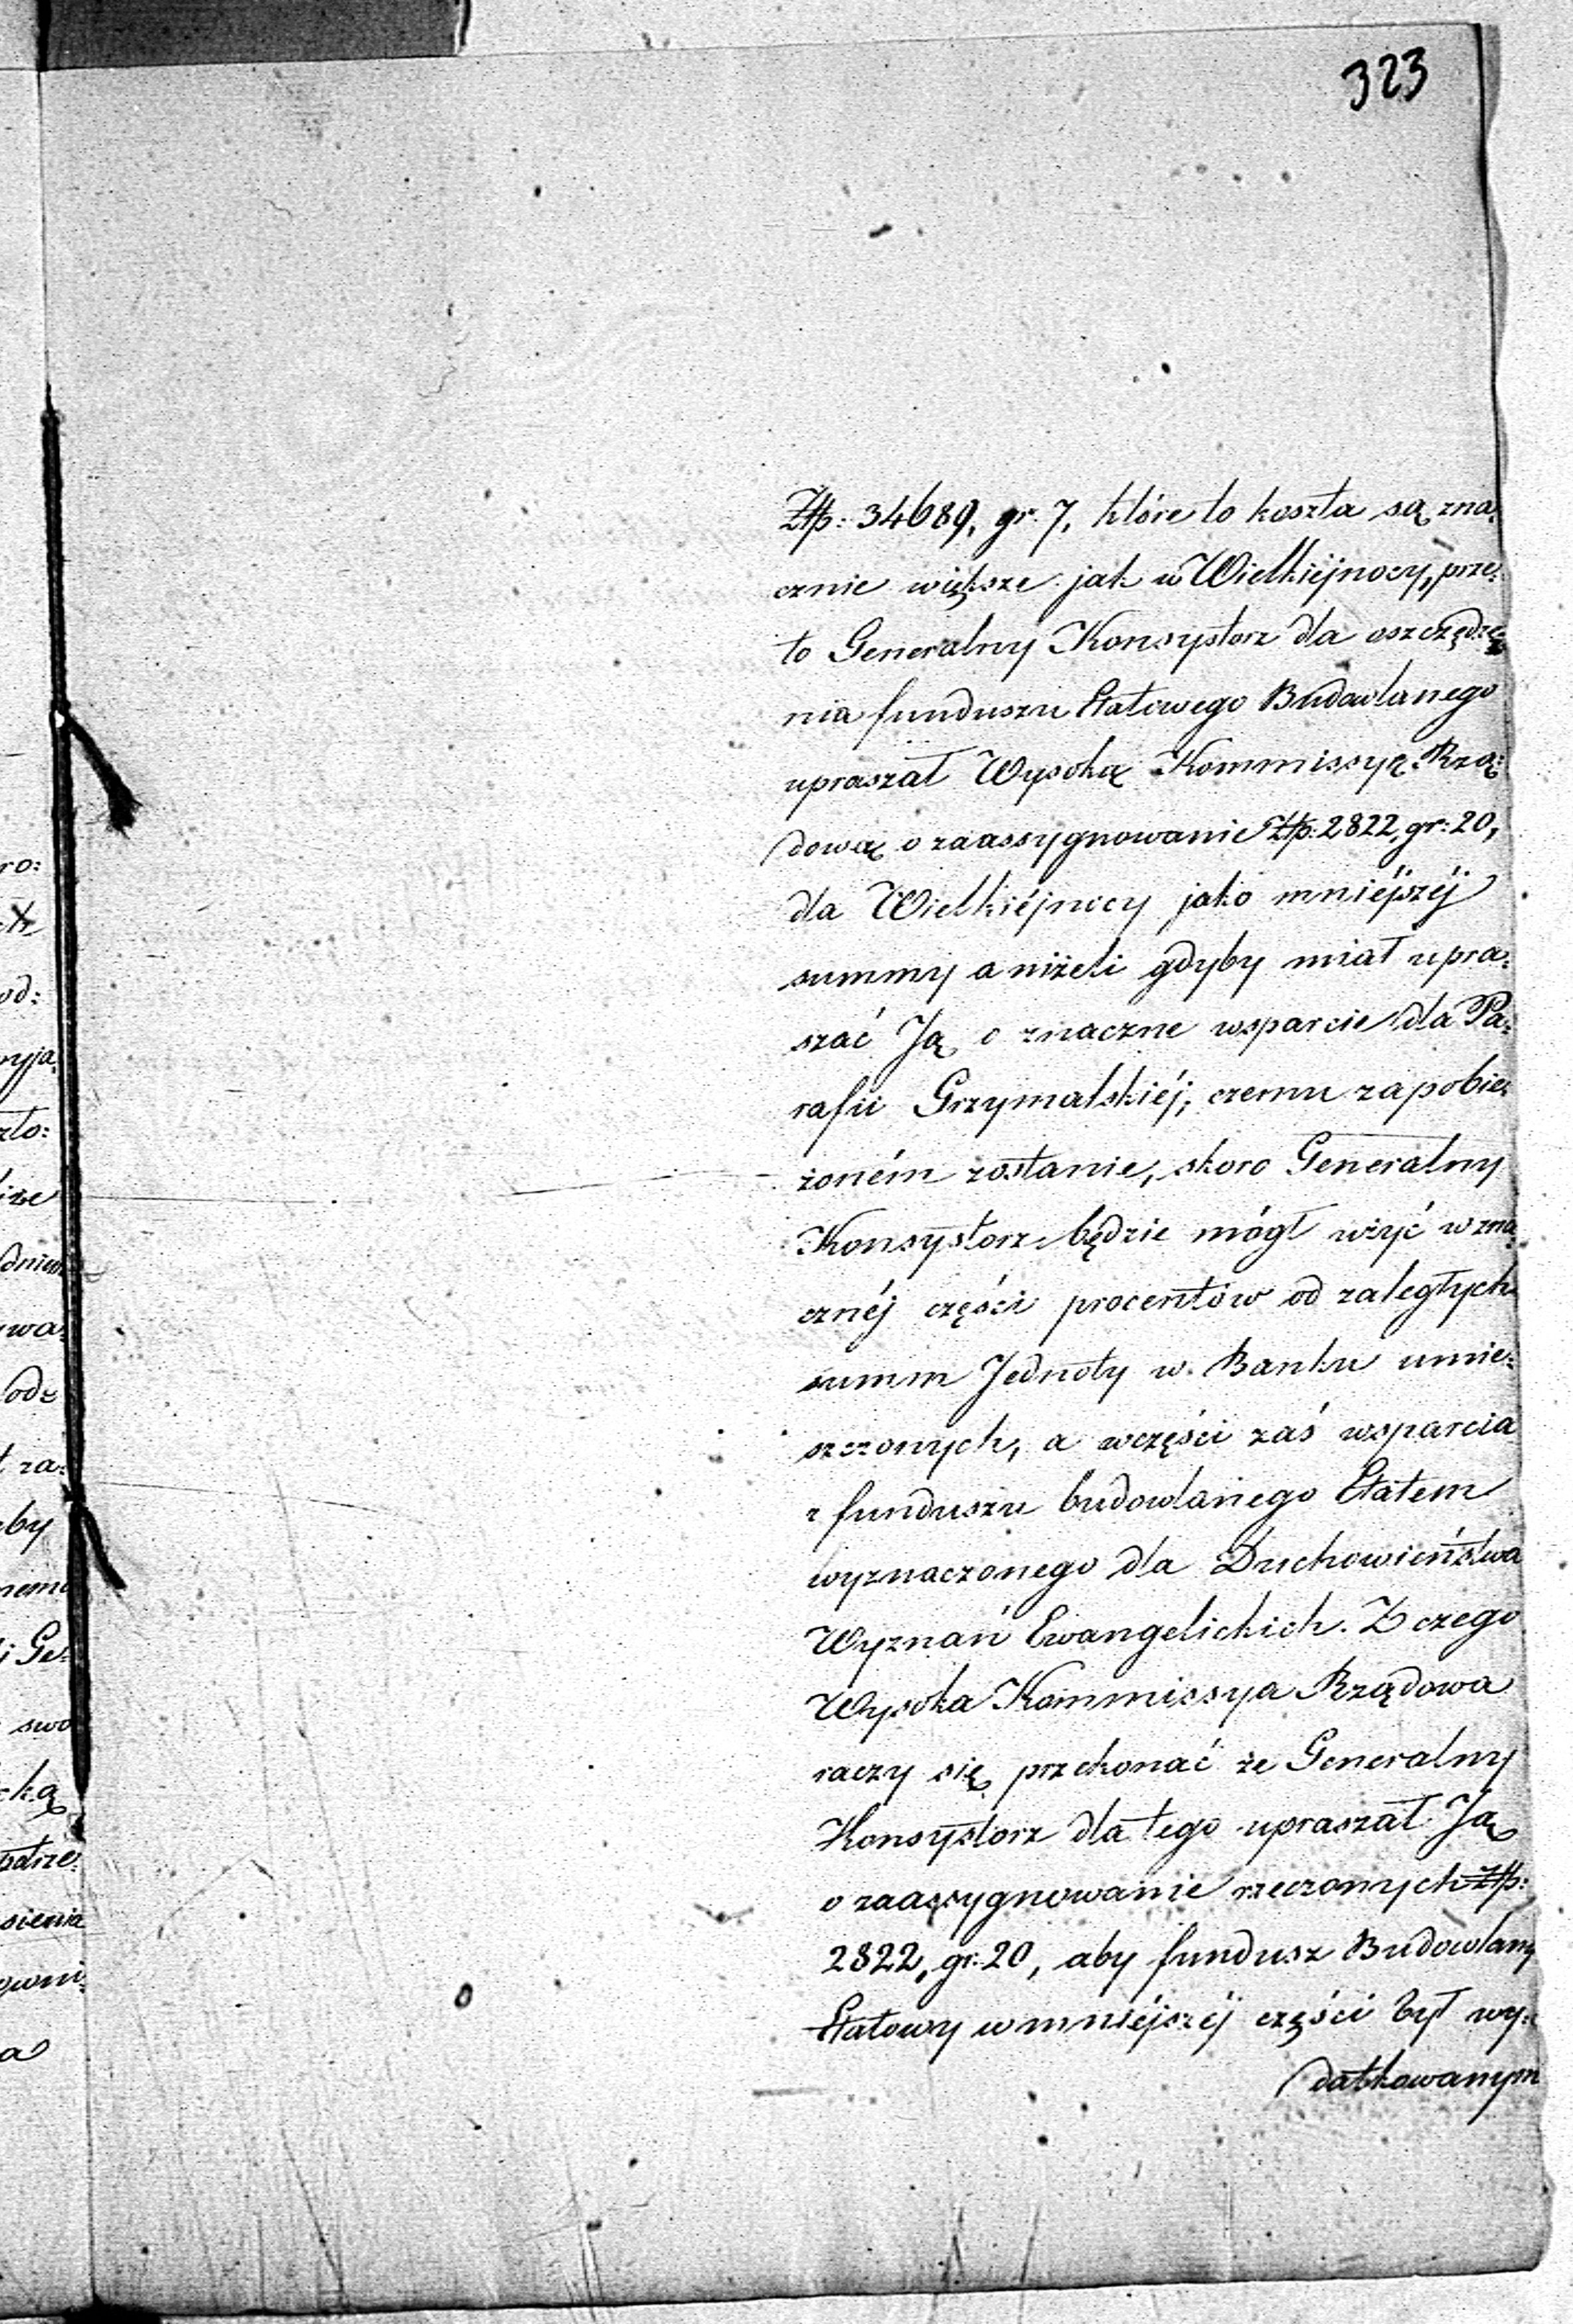 323
Złp: 34689, gr. 7, które to koszta są zna:
cznie większe jak w Wielkiéjnocy, prze:
to Generalny Konsystorz dla oszczędze:
nia funduszu Etatowego Budowlanego
upraszał Wysoką Kommissyę Rzą:
dową o zaassygnowanie Złp: 2822, gr: 20,
dla Wielkiéjnocy jako mniéjszéj
summy a niżeli gdyby miał upra:
szać Ją o znaczne wsparcie dla Pa:
rafii Grzymalskiéj; czemu zapobie:
żoném zostanie, skoro Generalny
Konsystorz będzie mógł użyć w zna:
cznéj części procentów od zaległych
summ Jednoty w Banku umie:
szczonych, a wczęści zaś wsparcia
z funduszu budowlanego Etatem
wyznaczonego dla Duchowieństwa
Wyznań Ewangelickich. Z czego
Wysoka Kommissya Rządowa
raczy się przekonać że Generalny
Konsystorz dla tego upraszał Ją
o zaassygnowanie rzeczonych Złp:
2822, gr: 20, aby fundusz Budowlany
Etatowy w mniéjszéj części był wy:
datkowanym
ro:
od:
nyja:
zło:
dniem
wa:
odz
za:
by
nemu
i Ge:
swo
cką
patrze:
sienia
owni:
a